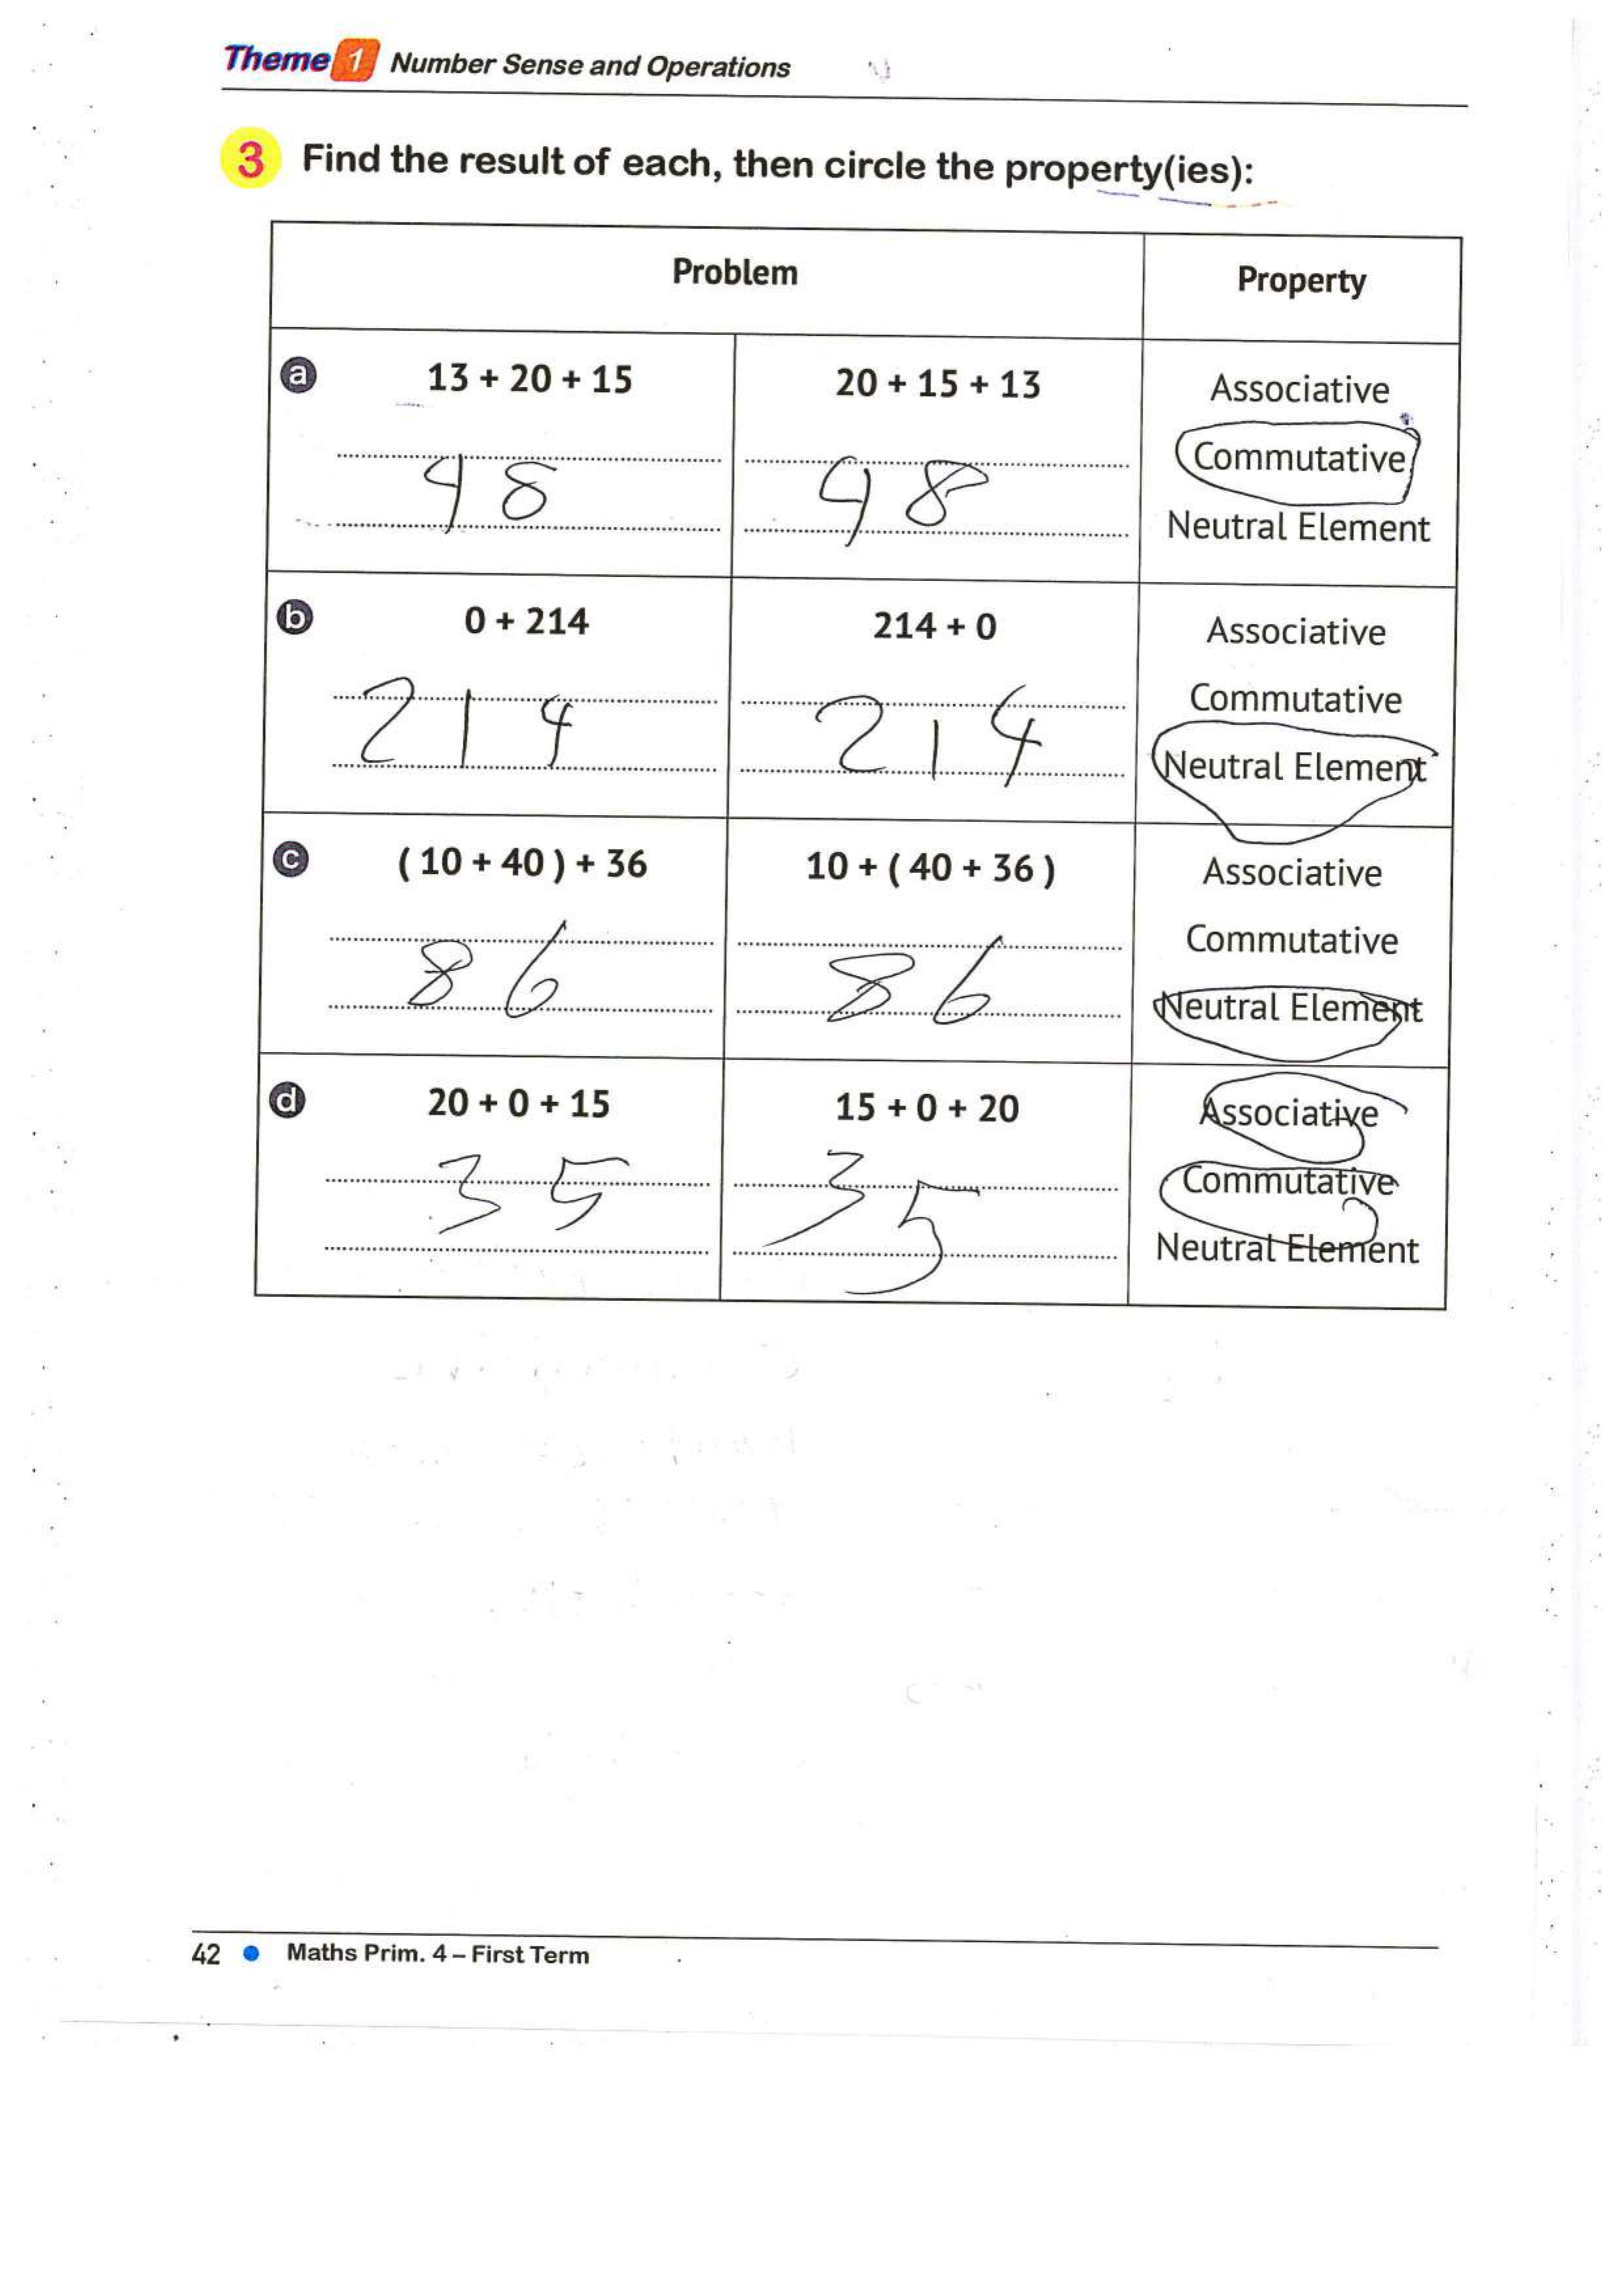 Theme 1 Number Sense and Operations
3 Find the result of each, then circle the property(ies):
Problem Property
a 13 + 20 + 15 20 + 15 + 13 Associative
Commutative
48 48
Neutral Element
b 0 + 214 214 + 0 Associative
Commutative
214 214
Neutral Element
c ( 10 + 40 ) + 36 10 + ( 40 + 36 ) Associative
Commutative
86 86
Neutral Element
d 20 + 0 + 15 15 + 0 + 20 Associative
Commutative
35 35
Neutral Element
42 • Maths Prim. 4 – First Term